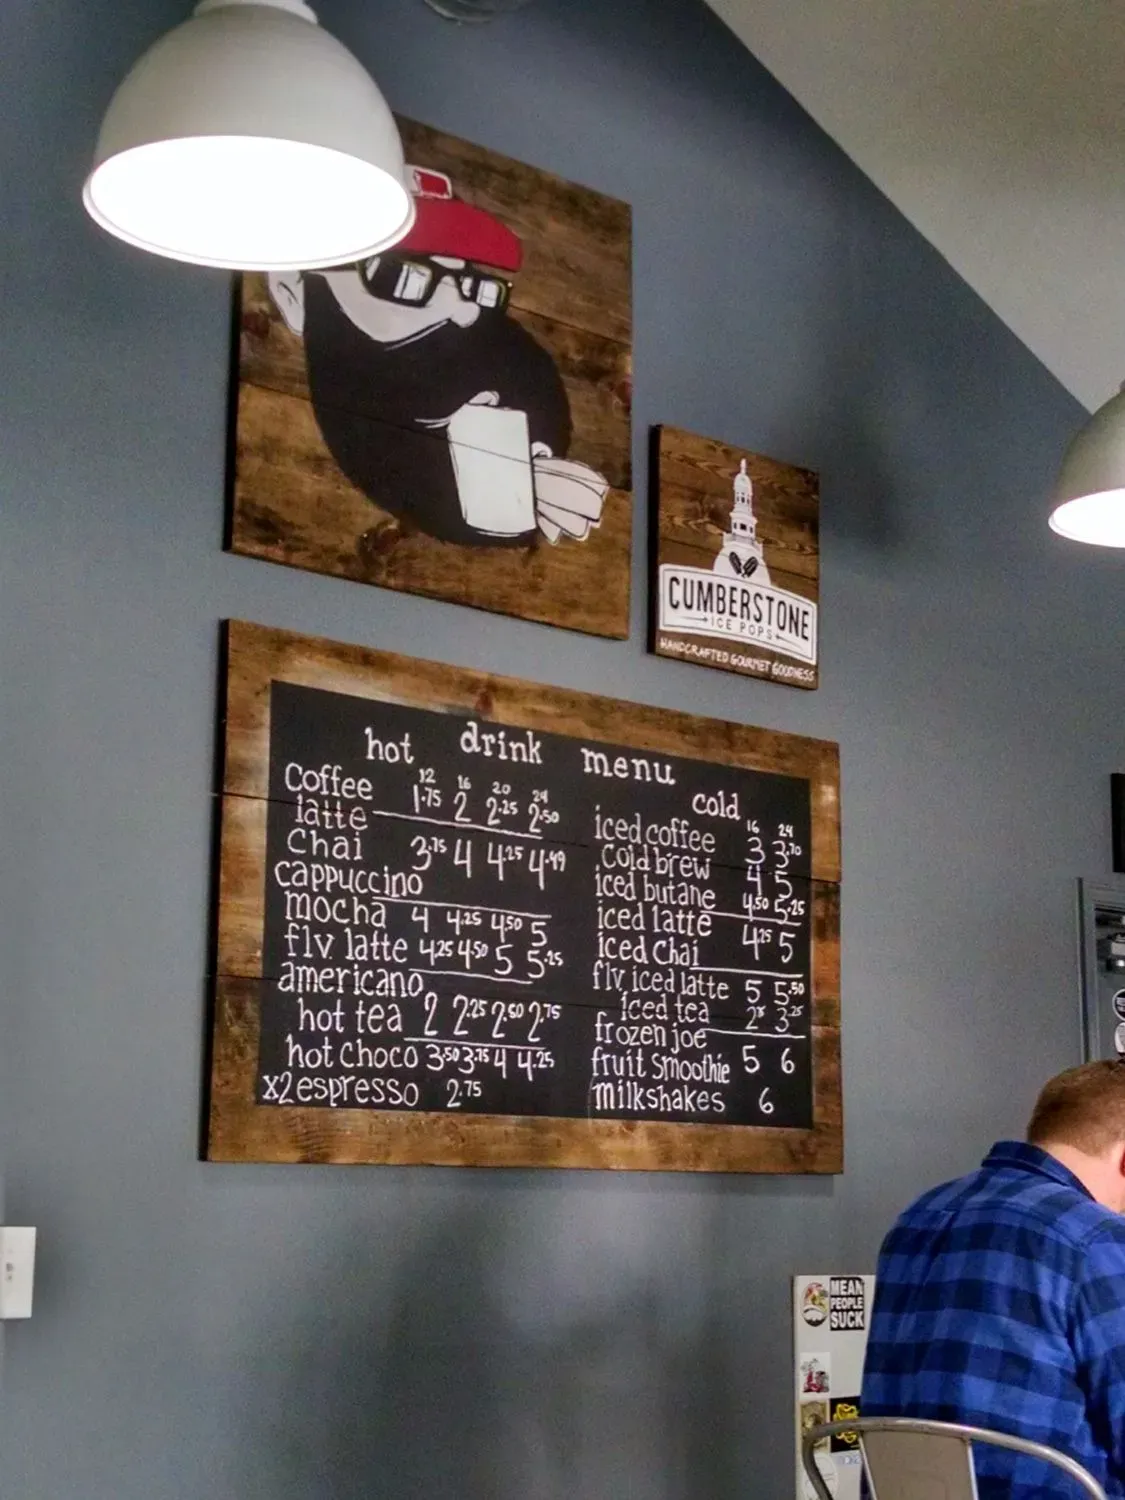 CUMBERSTONE
ICE POPS
HANDCRAFTED GOURMET GOODNESS
hot drink menu
12 16 20 24
Coffee 1.75 2 2.25 2.50
latte
Chai 3.75 4 4.25 4.49
cappuccino
mocha 4 4.25 4.50 5
flv. latte 4.25 4.50 5 5.25
americano
hot tea 2 2.25 2.50 2.75
hot choco 3.50 3.75 4 4.25
x2 espresso 2.75
cold
16 24
iced coffee 3 3.70
Cold brew 4 5
iced butane 4.50 5.25
iced latte
iced Chai 4.25 5
flv. iced latte 5 5.50
iced tea 3.25
frozen joe
fruit smoothie 5 6
milkshakes 6
MEAN
PEOPLE
SUCK